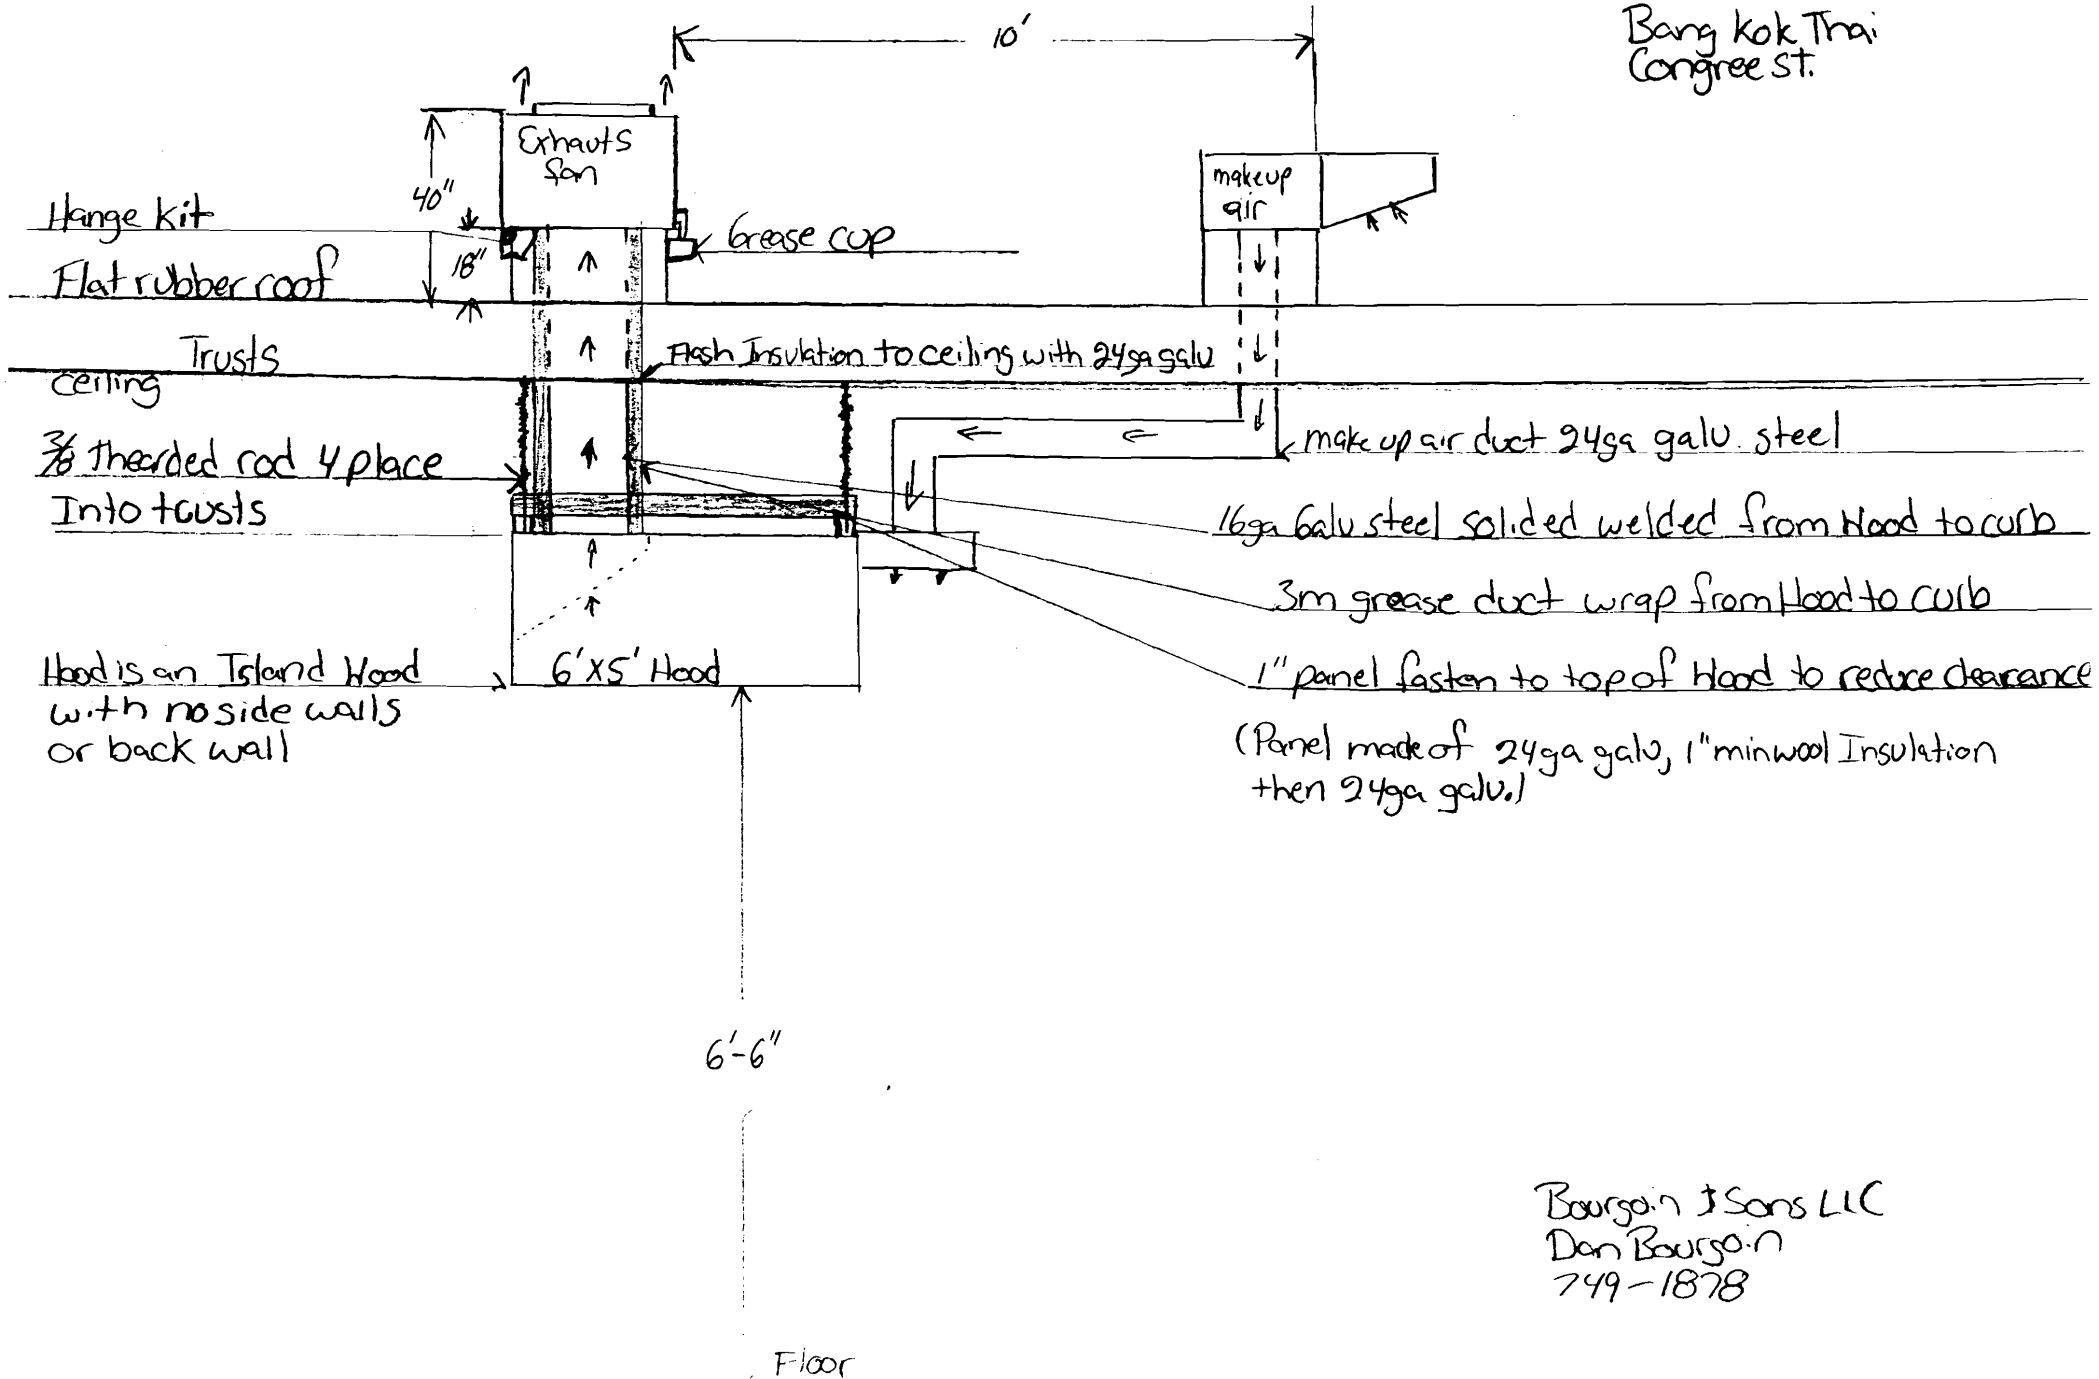 Bang kok Thai
Congree St.
10'
Exhauts
fan
40"
18"
makeup
air
Hange kit
Grease cup
Flat rubber roof
Trusts
Flash Insulation to ceiling with 24ga galv
ceiling
3/8 thearded rod 4 place
Into trusts
make up air duct 24ga galv. steel
16ga Galv steel solided welded from Hood to curb
3m grease duct wrap from Hood to curb
1" panel fasten to top of Hood to reduce clearance
(Panel made of 24ga galv, 1" minwool Insulation
then 24ga galv.)
Hood is an Island Hood
with no side walls
or back wall
6'x5' Hood
6'-6"
Floor
Bourgoin & Sons LLC
Dan Bourgoin
749-1878